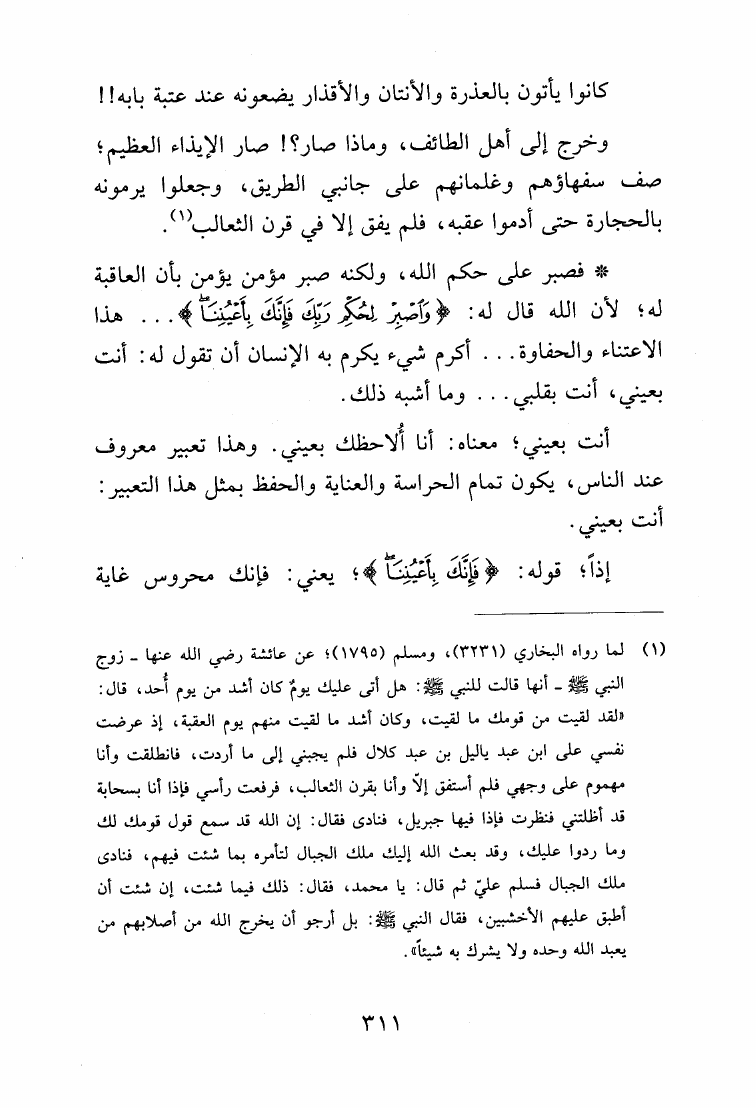 كانوا يأتون بالعذرة والأنتان والأقذار يضعونه عند عتبة بابه!!
وخرج إلى أهل الطائف، وماذا صار؟! صار الإيذاء العظيم؛
صف سفهاؤهم وغلمانهم على جانبي الطريق، وجعلوا يرمونه
بالحجارة حتى أدموا عقبه، فلم يفق إلا في قرن الثعالب(١).
* فصبر على حكم الله، ولكنه صبر مؤمن يؤمن بأن العاقبة
له؛ لأن الله قال له: ﴿وَٱصۡبِرۡ لِحُكۡمِ رَبِّكَ فَإِنَّكَ بِأَعۡيُنِنَاۖ﴾... هذا
الاعتناء والحفاوة... أكرم شيء يكرم به الإنسان أن تقول له: أنت
بعيني، أنت بقلبي... وما أشبه ذلك.
أنت بعيني؛ معناه: أنا أُلاحظك بعيني. وهذا تعبير معروف
عند الناس، يكون تمام الحراسة والعناية والحفظ بمثل هذا التعبير:
أنت بعيني.
إذاً؛ قوله: ﴿فَإِنَّكَ بِأَعۡيُنِنَاۖ﴾؛ يعني: فإنك محروس غاية
(١) لما رواه البخاري (٣٢٣١)، ومسلم (١٧٩٥)؛ عن عائشة رضي الله عنها ـ زوج
النبي ﷺ ـ أنها قالت للنبي ﷺ: هل أتى عليك يومٌ كان أشد من يوم أُحد، قال:
«لقد لقيت من قومك ما لقيت، وكان أشد ما لقيت منهم يوم العقبة، إذ عرضت
نفسي على ابن عبد ياليل بن عبد كلال فلم يجبني إلى ما أردت، فانطلقت وأنا
مهموم على وجهي فلم أستفق إلاّ وأنا بقرن الثعالب، فرفعت رأسي فإذا أنا بسحابة
قد أظلتني فنظرت فإذا فيها جبريل، فنادى فقال: إن الله قد سمع قول قومك لك
وما ردوا عليك، وقد بعث الله إليك ملك الجبال لتأمره بما شئت فيهم، فنادى
ملك الجبال فسلم عليّ ثم قال: يا محمد، فقال: ذلك فيما شئت، إن شئت أن
أطبق عليهم الأخشبين، فقال النبي ﷺ: بل أرجو أن يخرج الله من أصلابهم من
يعبد الله وحده ولا يشرك به شيئاً».
٣١١